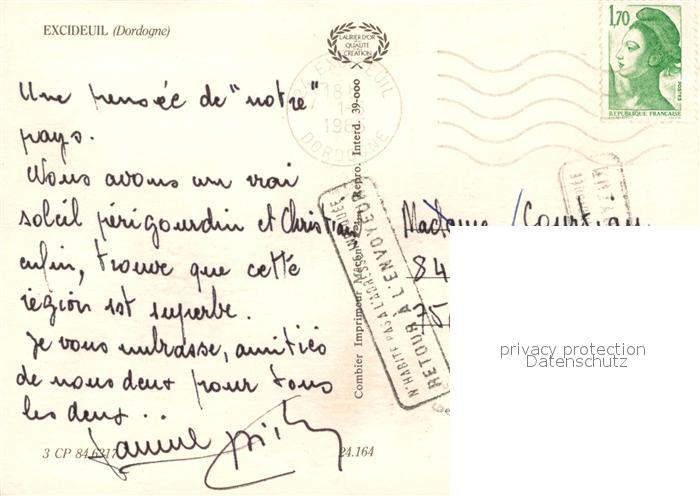 EXCIDEUIL (Dordogne)
LAURIER D'OR
DE LA
QUALITE
CREATION
1,70
POSTES
REPUBLIQUE FRANÇAISE
24 EXCIDEUIL
18H
1-8
DORDOGNE
Une pensée de "notre"
pays.
Nous avons un vrai
soleil périgourdin et Christian
enfin, trouve que cette
région est superbe.
Je vous embrasse, amitiés
de nous deux pour tous
les deux ..
3 CP 84.6217
24.164
Combier Imprimeur Mâcon
Repro. Interd. 39-000
N'HABITE PAS A L'ADRESSE INDIQUÉE
RETOUR A L'ENVOYEUR
Madame
84
75
privacy protection
Datenschutz